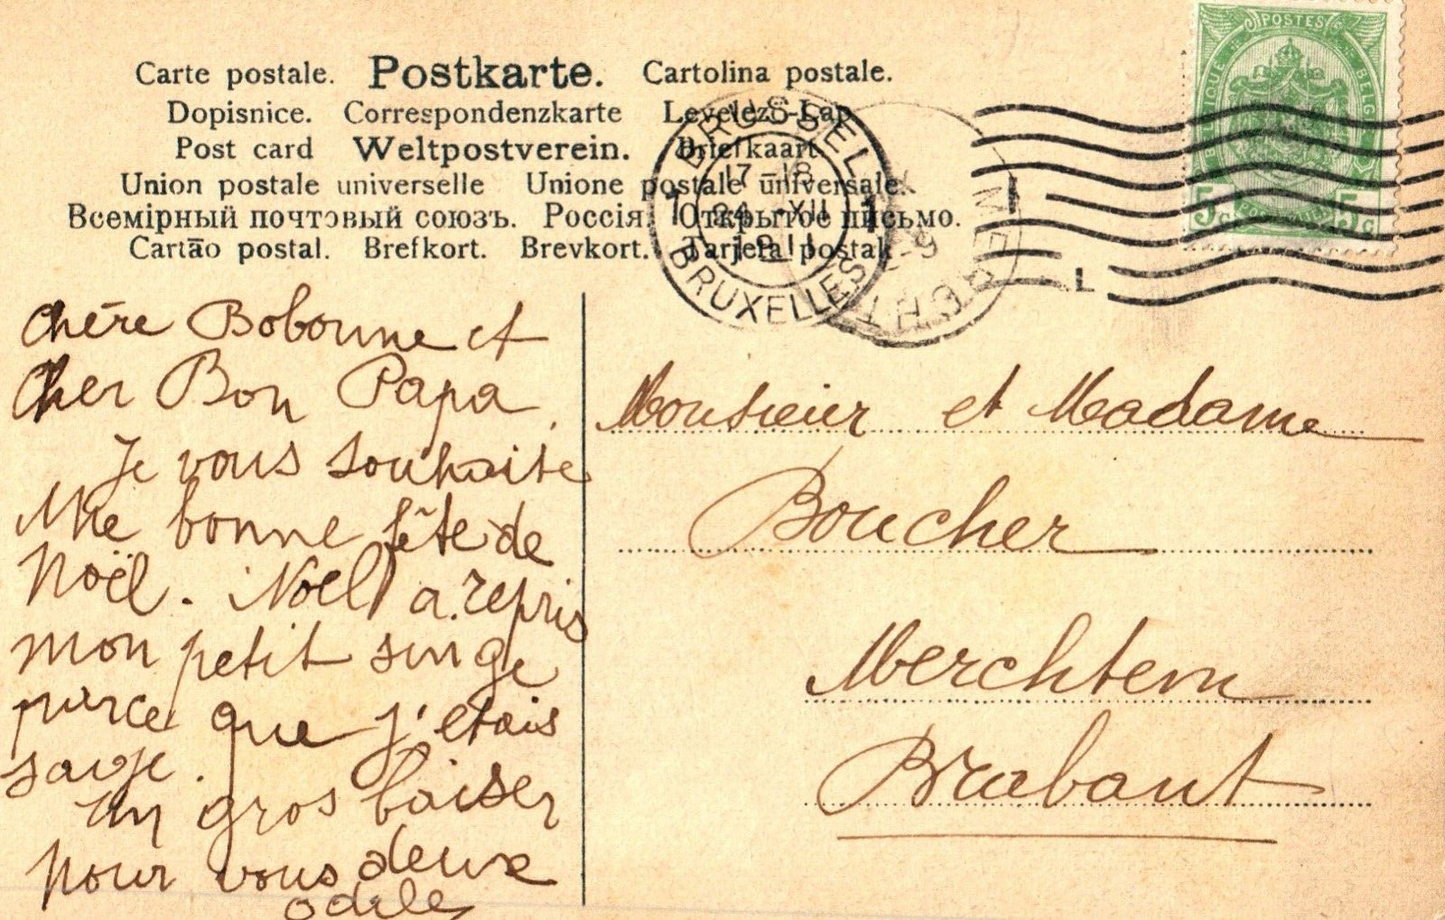 Carte postale. Postkarte. Cartolina postale.
Dopisnice. Correspondenzkarte Levelező-Lap
Post card Weltpostverein. Briefkaart
Union postale universelle Unione postale universale.
Всемірный почтовый союзъ. Россія. Открытое письмо.
Cartão postal. Brefkort. Brevkort. Tarjeta postal.
BRUSSEL
17-18
24 XII
1911
BRUXELLES
MERCHTEM
POSTES
BELGIQUE BELGIË
5c 5c
L
Chère Bobonne et
Cher Bon Papa,
Je vous souhaite
une bonne fête de
Noël. Noël a repris
mon petit singe
parce que j'etais
sage.
Un gros baiser
pour vous deux
Odile
Monsieur et Madame
Boucher
Merchtem
Brabant